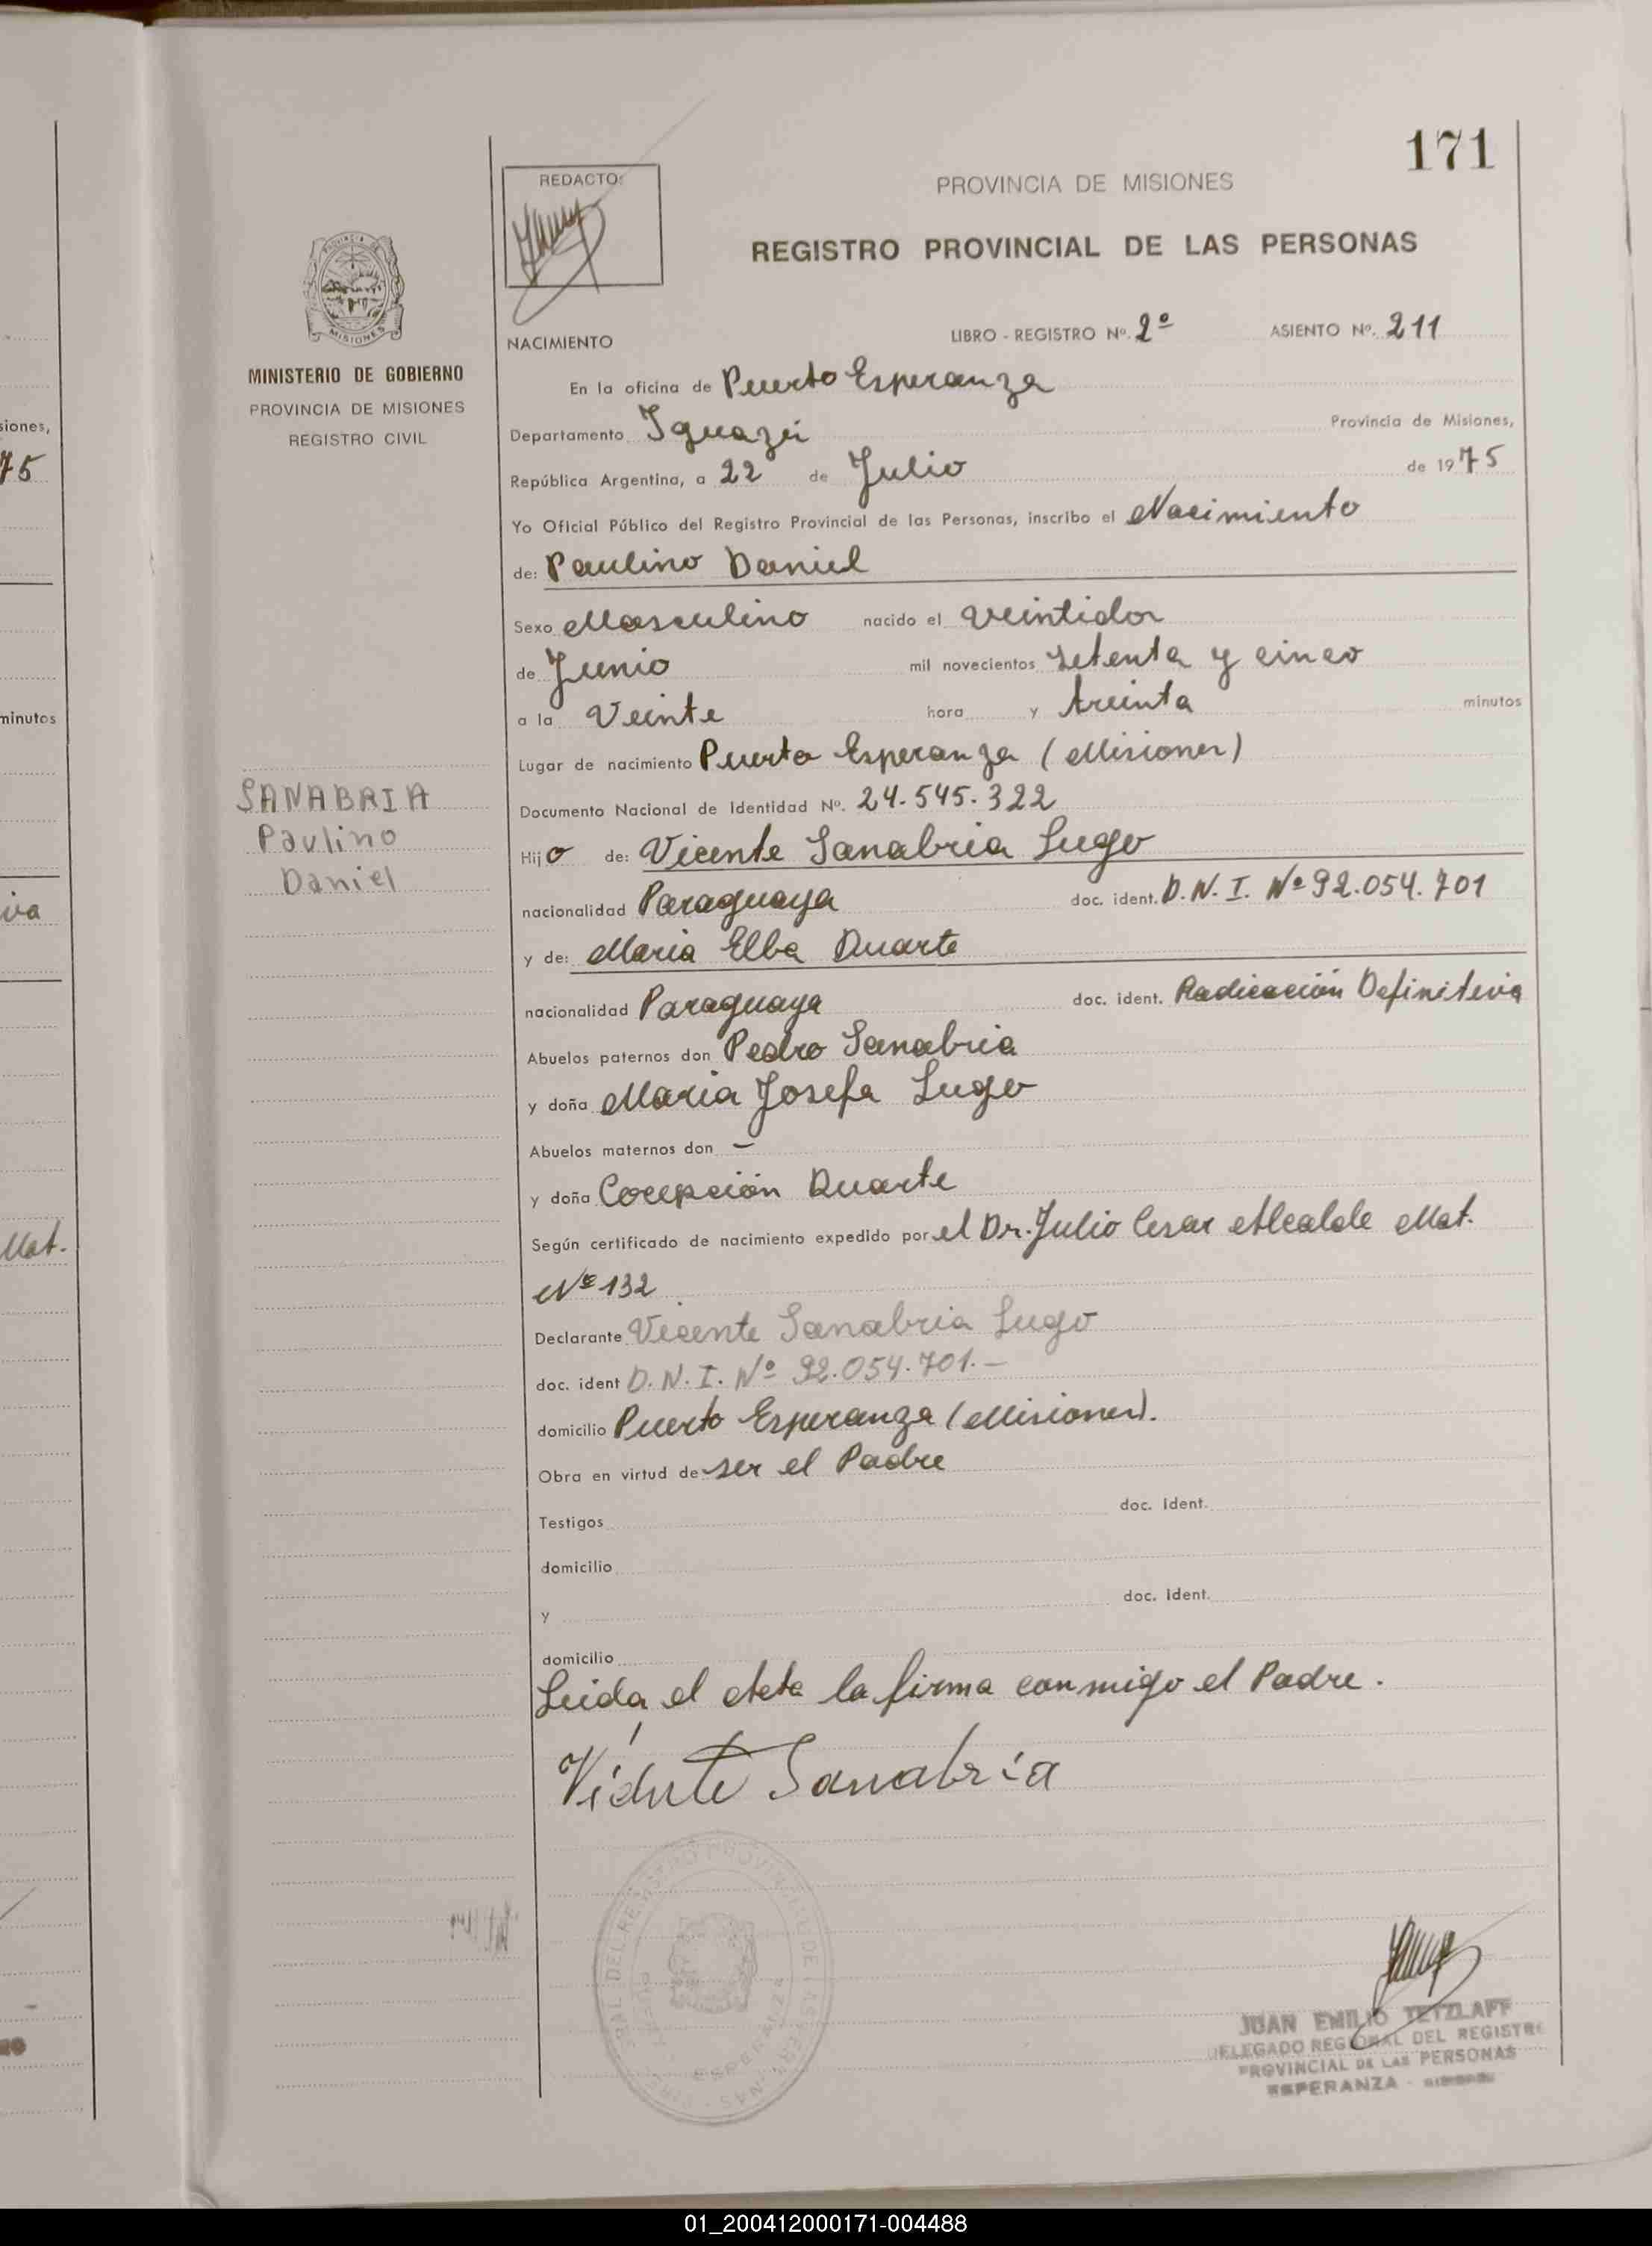 171
REDACTO:
PROVINCIA DE MISIONES
REGISTRO PROVINCIAL DE LAS PERSONAS
PROVINCIA DE
MISIONES
MINISTERIO DE GOBIERNO
PROVINCIA DE MISIONES
REGISTRO CIVIL
NACIMIENTO
LIBRO - REGISTRO Nº. 2º ASIENTO Nº. 211
En la oficina de Puerto Esperanza
Departamento Iguazú Provincia de Misiones,
República Argentina, a 22 de Julio de 1975
Yo Oficial Público del Registro Provincial de las Personas, inscribo el Nacimiento
de: Paulino Daniel
Sexo Masculino nacido el veintidos
de Junio mil novecientos setenta y cinco
a la Veinte hora y treinta minutos
Lugar de nacimiento Puerto Esperanza (Misiones)
SANABRIA
Paulino
Daniel
Documento Nacional de Identidad Nº. 24.545.322
Hijo de: Vicente Sanabria Lugo
nacionalidad Paraguaya doc. ident. D.N.I. Nº 92.054.701
y de: Maria Elba Duarte
nacionalidad Paraguaya doc. ident. Radicación Definitiva
Abuelos paternos don Pedro Sanabria
y doña Maria Josefa Lugo
Abuelos maternos don —
y doña Cocepción Duarte
Según certificado de nacimiento expedido por el Dr. Julio Cesar Alcalde Mat.
Nº 132
Declarante Vicente Sanabria Lugo
doc. ident D.N.I. Nº 92.054.701.-
domicilio Puerto Esperanza (Misiones).
Obra en virtud de ser el Padre
Testigos doc. ident.
domicilio
y doc. ident.
domicilio
Leida el Acta la firma conmigo el Padre.
Vicente Sanabria
JUAN EMILIO TETZLAFF
DELEGADO REGIONAL DEL REGISTRO
PROVINCIAL DE LAS PERSONAS
ESPERANZA -
siones,
75
minutos
iva
Mat.
01_200412000171-004488